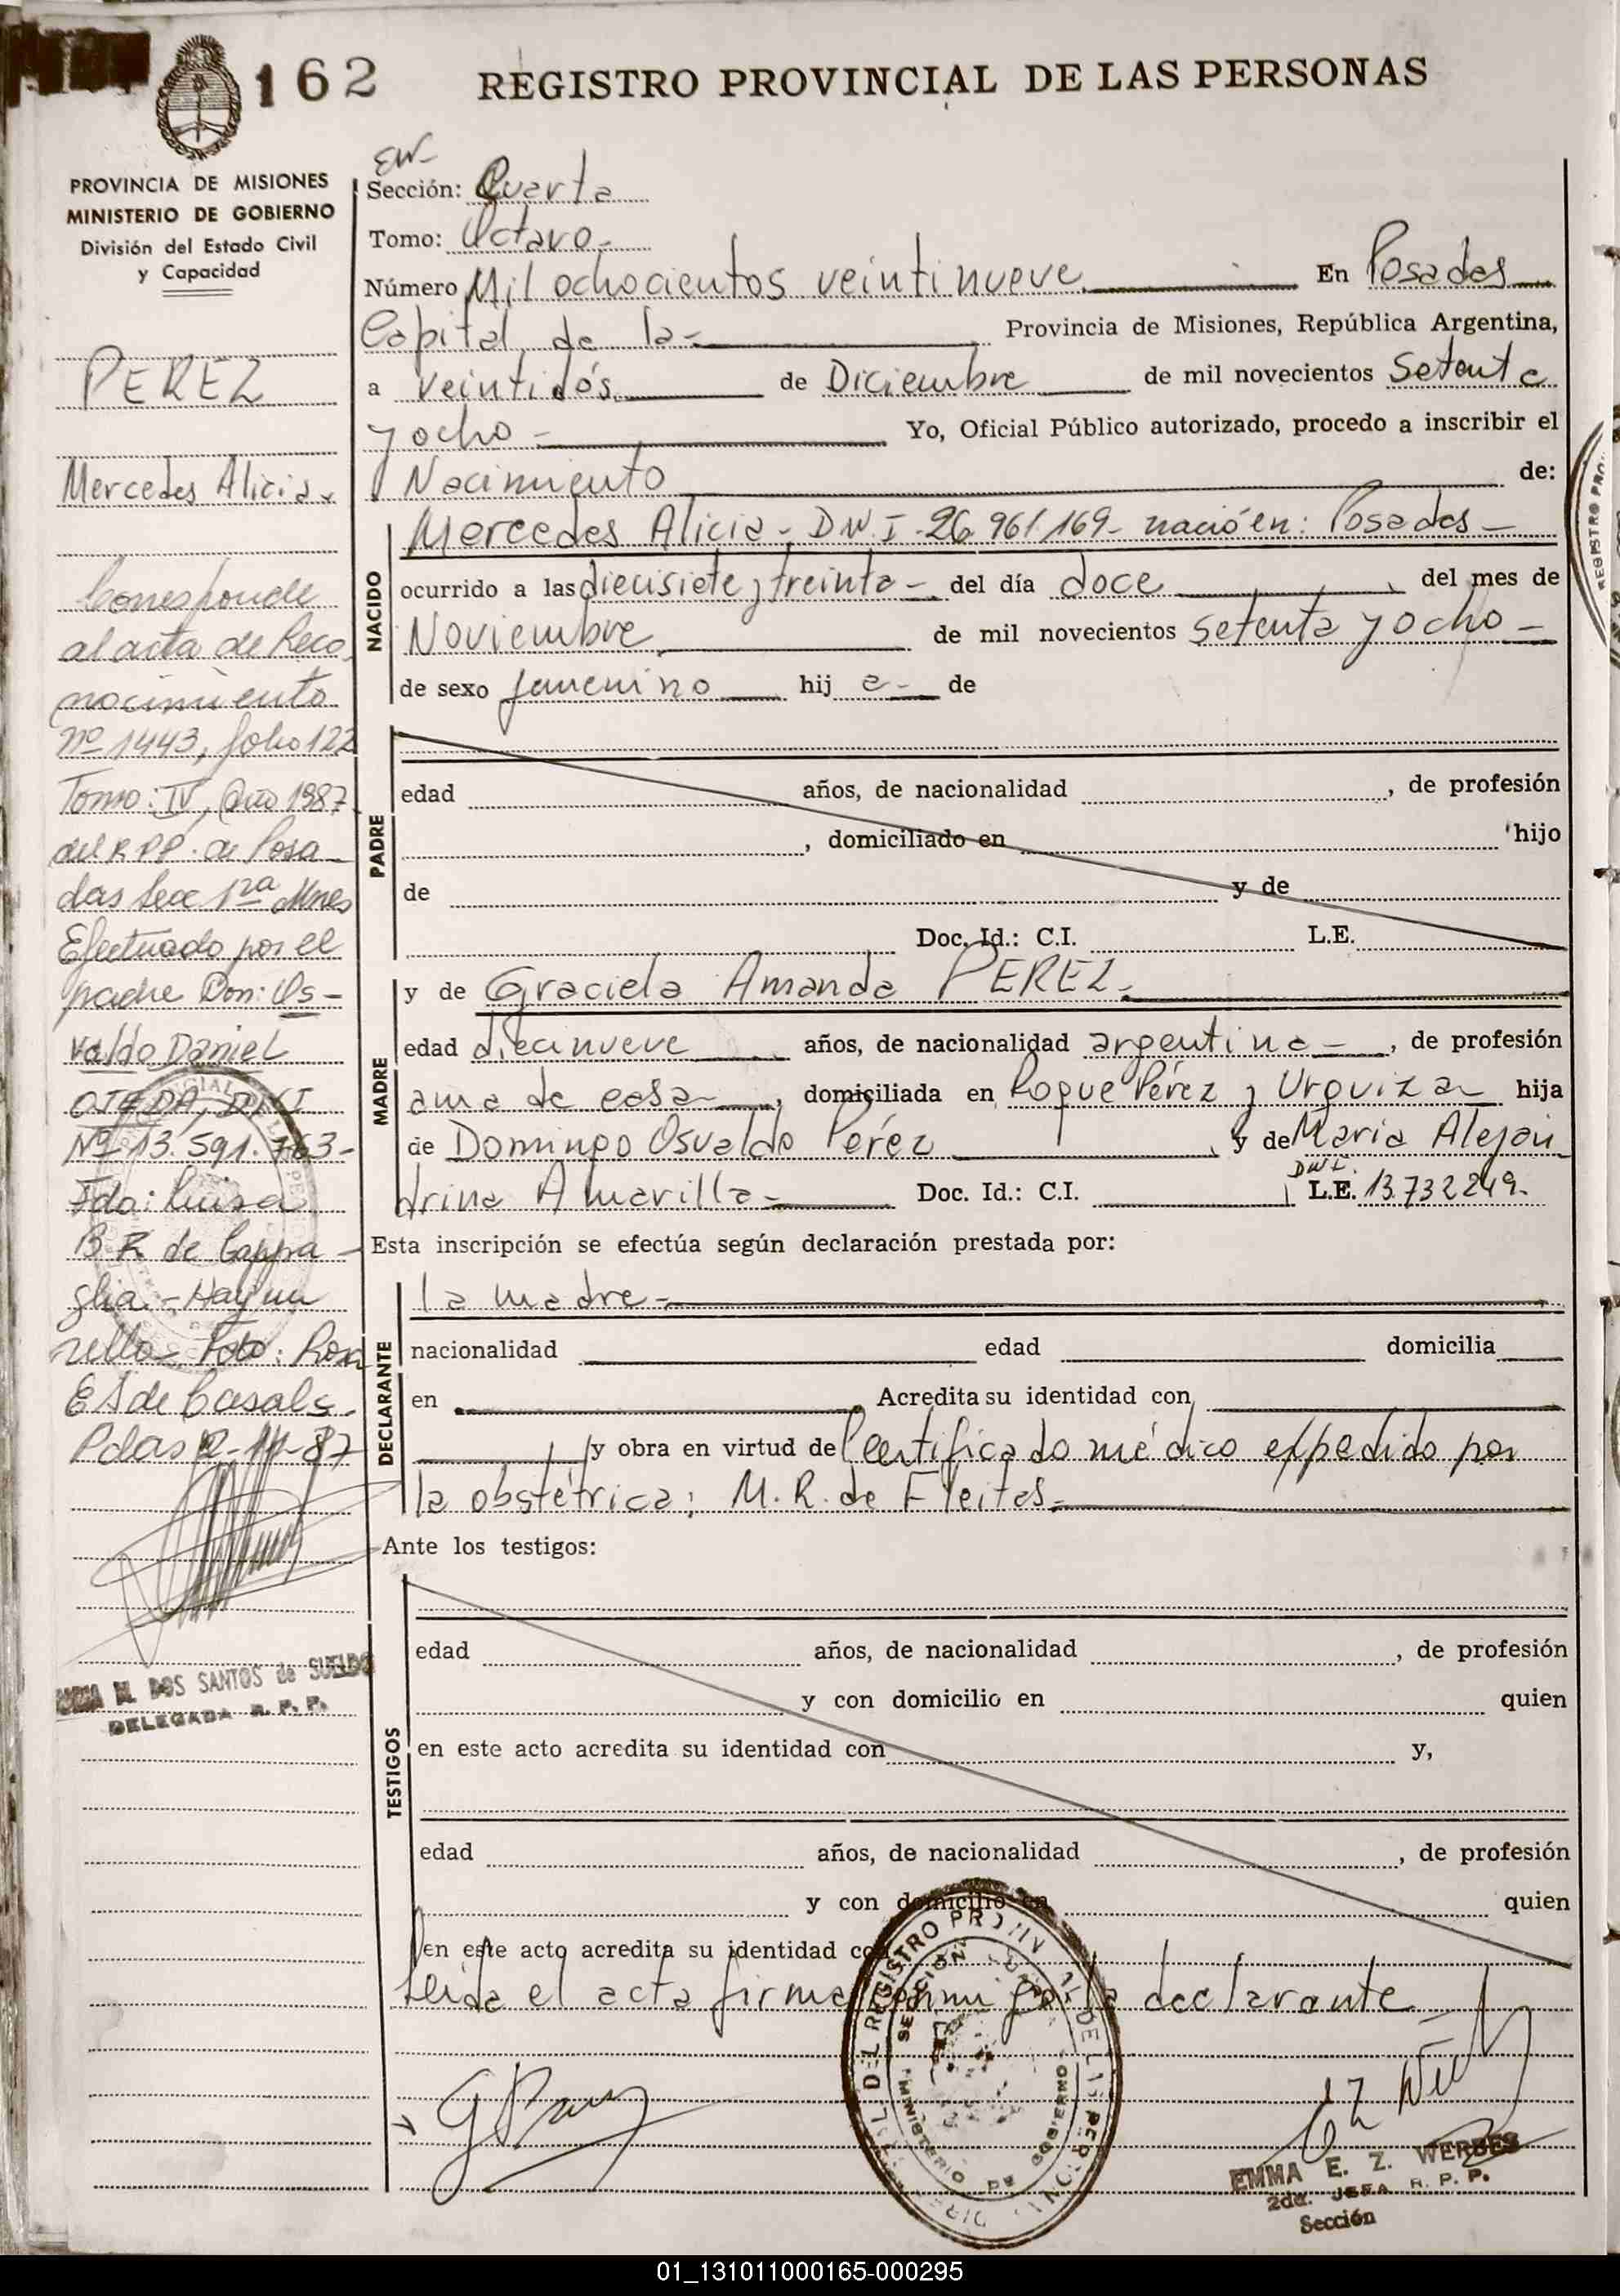 162 REGISTRO PROVINCIAL DE LAS PERSONAS
PROVINCIA DE MISIONES
MINISTERIO DE GOBIERNO
División del Estado Civil
y Capacidad
PEREZ
Mercedes Alicia
Corresponde
al acta de Reco
nocimiento
Nº 1443, folio 122
Tomo: IV, Año 1987
del R.P.P. de Posa
das Secc 1ra Mnes
Efectuado por el
padre Don: Os-
valdo Daniel
OJEDA, D.N.I
Nº 13.591.763-
Fdo: Luisa
B. R de Cappa
glia.-Hay un
sello- Fdo: Rosa
E A de Casals.
Pdas 12-11-87
DOS SANTOS de SUELDO
DELEGADA R. P. P.
EW-
Sección: Cuarta
Tomo: Octavo.-
Número Mil ochocientos veintinueve. En Posadas
Capital de la- Provincia de Misiones, República Argentina,
a veintidós. de Diciembre de mil novecientos Setenta
y ocho - Yo, Oficial Público autorizado, procedo a inscribir el
Nacimiento de:
NACIDO
Mercedes Alicia - D.N.I - 26.961.169- nació en: Posadas -
ocurrido a las diecisiete y treinta - del día doce del mes de
Noviembre de mil novecientos setenta y ocho -
de sexo femenino hij a- de
PADRE
edad años, de nacionalidad , de profesión
, domiciliado en hijo
de y de
Doc. Id.: C.I. L.E.
MADRE
y de Graciela Amanda PEREZ.
edad diecinueve años, de nacionalidad argentina - , de profesión
ama de casa , domiciliada en Roque Pérez y Urquiza hija
de Domingo Osvaldo Pérez y de Maria Alejan
drina Amarilla- Doc. Id.: C.I. D.N.I. L.E. 13.732249-
Esta inscripción se efectúa según declaración prestada por:
DECLARANTE
la madre-
nacionalidad edad domicilia
en Acredita su identidad con
y obra en virtud de Certificado médico expedido por
la obstétrica; M. R. de Fleitas-
Ante los testigos:
TESTIGOS
edad años, de nacionalidad , de profesión
y con domicilio en quien
en este acto acredita su identidad con y,
edad años, de nacionalidad , de profesión
y con domicilio en quien
en este acto acredita su identidad co
Leida el acta firma la declarante
SECCION
MINISTERIO DE GOBIERNO
EMMA E. Z. WERBES
2da. JEFA R. P. P.
Sección
REGISTRO PRO
01_131011000165-000295